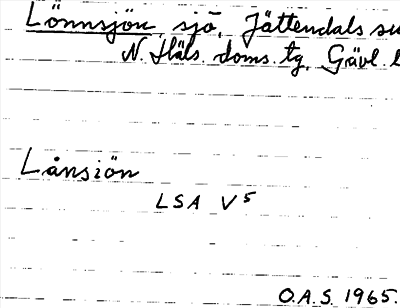 Lönnsjön, sjö, Jättendals su
N. Häls. doms. tg. Gävl. l
Lånsiön
LSA V5
O.A.S. 1965.